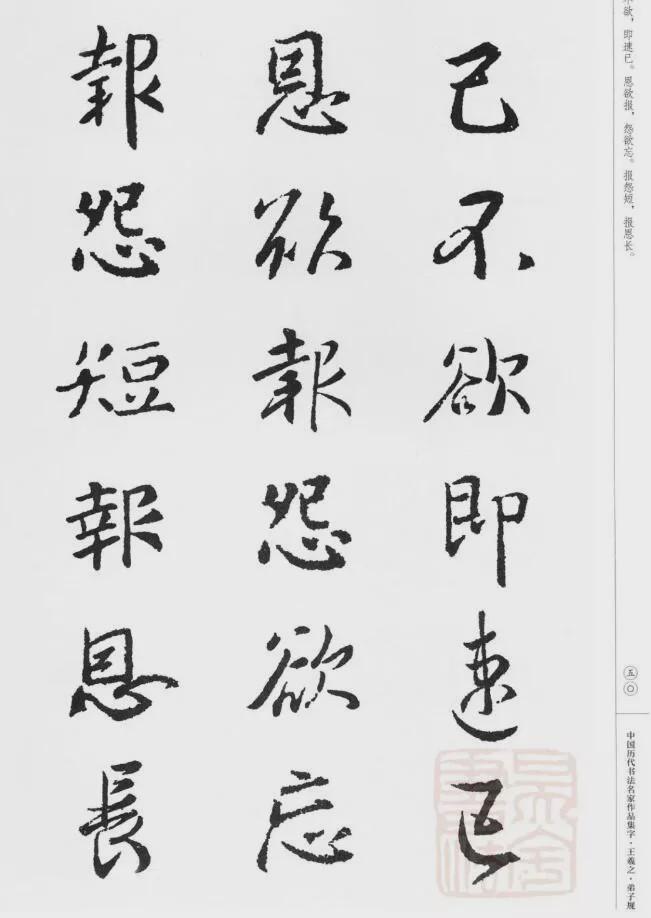 欲，即速已。恩欲报，怨欲忘。报怨短，报恩长。
己不欲即速已
恩欲報怨欲忘
報怨短報恩長
五〇
中国历代书法名家作品集字·王羲之·弟子规